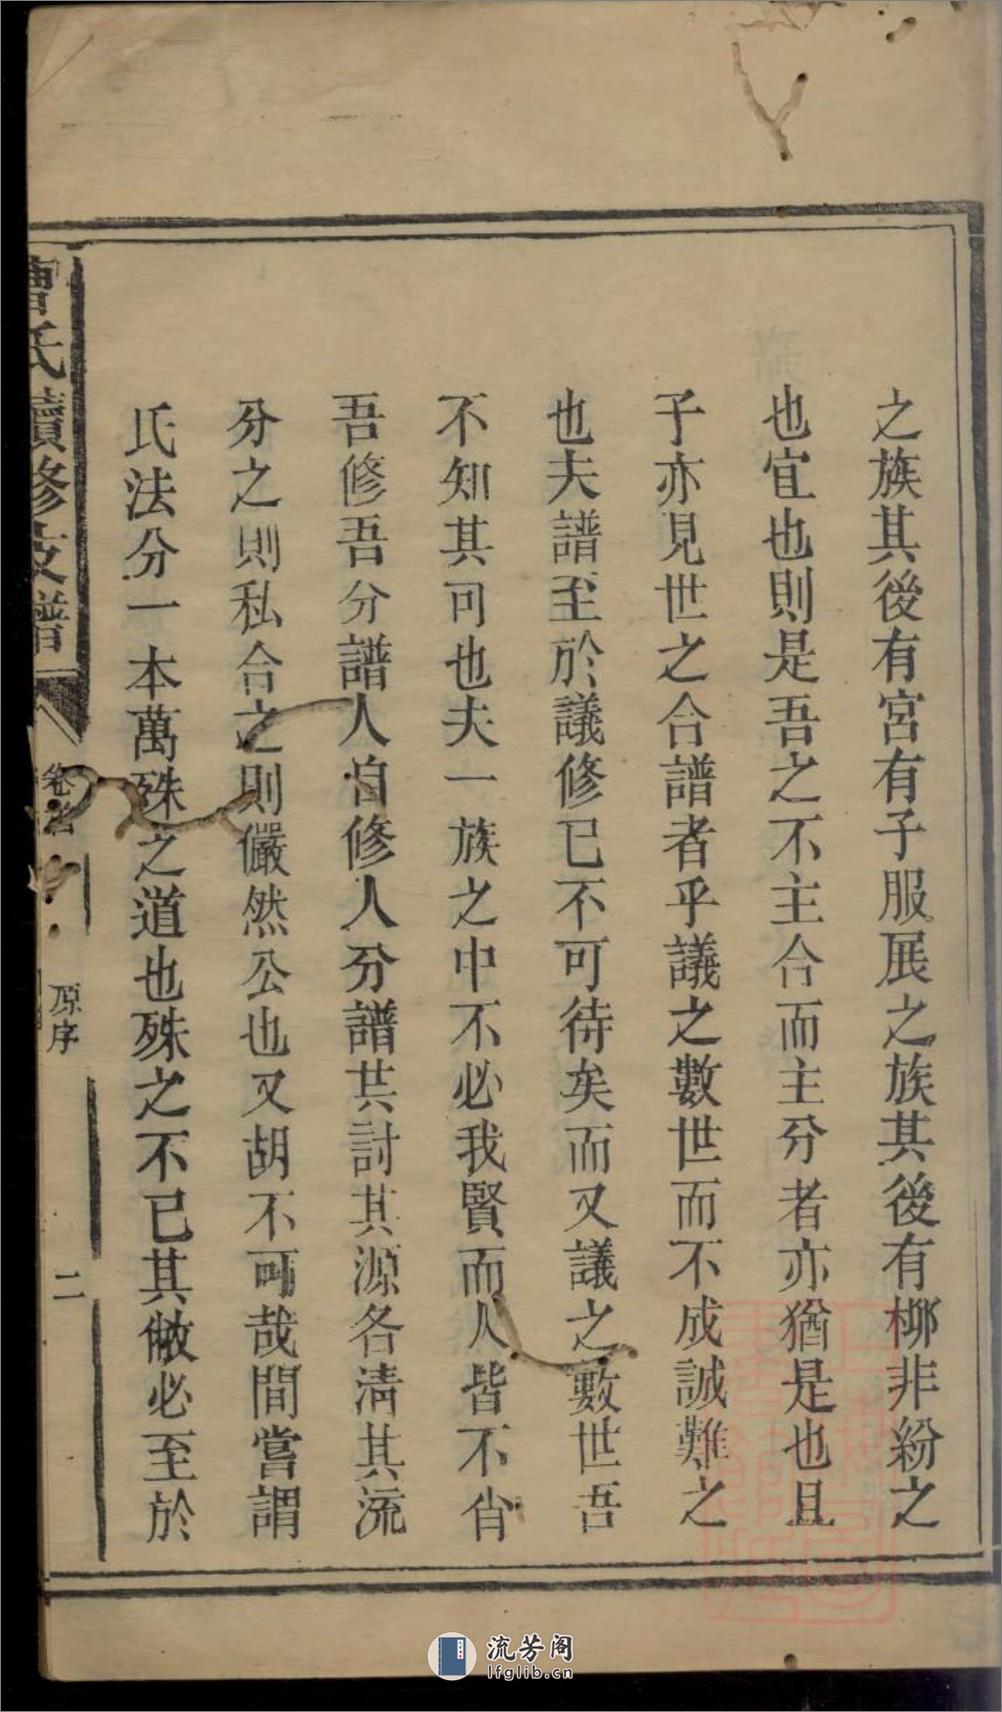 之族其後有宮有子服展之族其後有柳非紛之
也宜也則是吾之不主合而主分者亦猶是也且
子亦見世之合譜者乎議之數世而不成誠難之
也夫譜至於議修已不可待矣而又議之數世吾
不知其可也夫一族之中不必我賢而人皆不肖
吾修吾分譜人自修人分譜共討其源各清其流
分之則私合之則儼然公也又胡不可哉間嘗謂
氏法分一本萬殊之道也殊之不已其敝必至於
曹氏續修支譜
卷首
原序
二
流芳阁
lfglib.cn